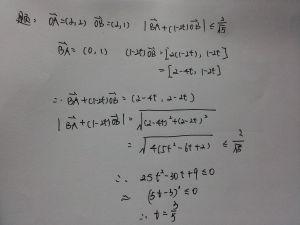 OA=(2,2) OB=(2,1) |BA+(1-2t)OB| ≤ 2/√5
BA = (0,1) (1-2t)OB = [2(1-2t), 1-2t]
= [2-4t, 1-2t]
∴ BA+(1-2t)OB = (2-4t, 2-2t)
|BA+(1-2t)OB| = √((2-4t)²+(2-2t)²)
= √(4(5t²-6t+2)) ≤ 2/√5
∴ 25t²-30t+9 ≤ 0
(5t-3)² ≤ 0
∴ t = 3/5